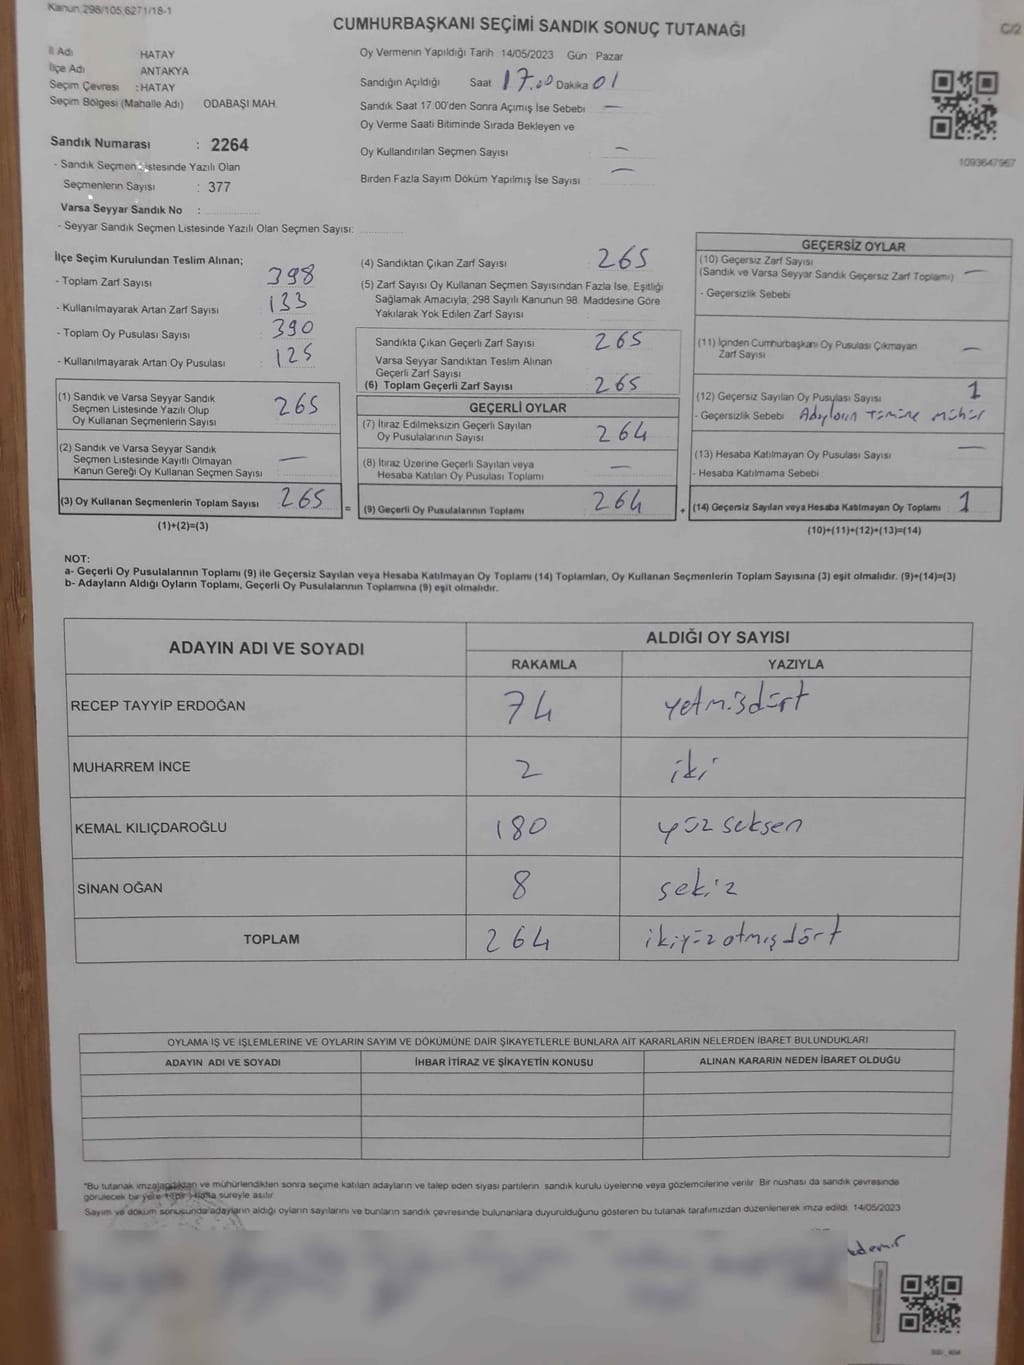 Kanun,298/105,6271/18-1
CUMHURBAŞKANI SEÇİMİ SANDIK SONUÇ TUTANAĞI
C/2
İl Adı : HATAY
İlçe Adı : ANTAKYA
Seçim Çevresi : HATAY
Seçim Bölgesi (Mahalle Adı) ODABAŞI MAH.
Oy Vermenin Yapıldığı Tarih 14/05/2023 Gün Pazar
Sandığın Açıldığı Saat 17.00 Dakika 01
Sandık Saat 17:00'den Sonra Açımış İse Sebebi —
Oy Verme Saati Bitiminde Sırada Bekleyen ve
Oy Kullandırılan Seçmen Sayısı —
Birden Fazla Sayım Döküm Yapılmış İse Sayısı —
1093647967
Sandık Numarası : 2264
- Sandık Seçmen Listesinde Yazılı Olan
Seçmenlerin Sayısı : 377
Varsa Seyyar Sandık No :
- Seyyar Sandık Seçmen Listesinde Yazılı Olan Seçmen Sayısı:
İlçe Seçim Kurulundan Teslim Alınan;
- Toplam Zarf Sayısı 398
- Kullanılmayarak Artan Zarf Sayısı 133
- Toplam Oy Pusulası Sayısı 390
- Kullanılmayarak Artan Oy Pusulası 125
(1) Sandık ve Varsa Seyyar Sandık
Seçmen Listesinde Yazılı Olup
Oy Kullanan Seçmenlerin Sayısı 265
(2) Sandık ve Varsa Seyyar Sandık
Seçmen Listesinde Kayıtlı Olmayan
Kanun Gereği Oy Kullanan Seçmen Sayısı —
(3) Oy Kullanan Seçmenlerin Toplam Sayısı 265
(1)+(2)=(3)
=
(4) Sandıktan Çıkan Zarf Sayısı 265
(5) Zarf Sayısı Oy Kullanan Seçmen Sayısından Fazla İse, Eşitliği
Sağlamak Amacıyla; 298 Sayılı Kanunun 98. Maddesine Göre
Yakılarak Yok Edilen Zarf Sayısı
Sandıkta Çıkan Geçerli Zarf Sayısı 265
Varsa Seyyar Sandıktan Teslim Alınan
Geçerli Zarf Sayısı
(6) Toplam Geçerli Zarf Sayısı 265
GEÇERLİ OYLAR
(7) İtiraz Edilmeksizin Geçerli Sayılan
Oy Pusulalarının Sayısı 264
(8) İtiraz Üzerine Geçerli Sayılan veya
Hesaba Katılan Oy Pusulası Toplamı —
(9) Geçerli Oy Pusulalarının Toplamı 264
+
GEÇERSİZ OYLAR
(10) Geçersiz Zarf Sayısı
(Sandık ve Varsa Seyyar Sandık Geçersiz Zarf Toplamı) —
- Geçersizlik Sebebi
(11) İçinden Cumhurbaşkanı Oy Pusulası Çıkmayan
Zarf Sayısı —
(12) Geçersiz Sayılan Oy Pusulası Sayısı 1
- Geçersizlik Sebebi Adayların tümüne mühür
(13) Hesaba Katılmayan Oy Pusulası Sayısı —
- Hesaba Katılmama Sebebi
(14) Geçersiz Sayılan veya Hesaba Katılmayan Oy Toplamı 1
(10)+(11)+(12)+(13)=(14)
NOT:
a- Geçerli Oy Pusulalarının Toplamı (9) ile Geçersiz Sayılan veya Hesaba Katılmayan Oy Toplamı (14) Toplamları, Oy Kullanan Seçmenlerin Toplam Sayısına (3) eşit olmalıdır. (9)+(14)=(3)
b- Adayların Aldığı Oyların Toplamı, Geçerli Oy Pusulalarının Toplamına (9) eşit olmalıdır.
ADAYIN ADI VE SOYADI
ALDIĞI OY SAYISI
RAKAMLA YAZIYLA
RECEP TAYYİP ERDOĞAN 74 yetmişdört
MUHARREM İNCE 2 iki
KEMAL KILIÇDAROĞLU 180 yüz seksen
SİNAN OĞAN 8 sekiz
TOPLAM 264 ikiyüz otmışdört
OYLAMA İŞ VE İŞLEMLERİNE VE OYLARIN SAYIM VE DÖKÜMÜNE DAİR ŞİKAYETLERLE BUNLARA AİT KARARLARIN NELERDEN İBARET BULUNDUKLARI
ADAYIN ADI VE SOYADI İHBAR İTİRAZ VE ŞİKAYETİN KONUSU ALINAN KARARIN NEDEN İBARET OLDUĞU
*Bu tutanak imzalandıktan ve mühürlendikten sonra seçime katılan adayların ve talep eden siyasi partilerin sandık kurulu üyelerine veya gözlemcilerine verilir. Bir nüshası da sandık çevresinde
görülecek bir yere 1 (bir) hafta süreyle asılır.
Sayım ve döküm sonusunda adayların aldığı oyların sayılarını ve bunların sandık çevresinde bulunanlara duyurulduğunu gösteren bu tutanak tarafımızdan düzenlenerek imza edildi. 14/05/2023